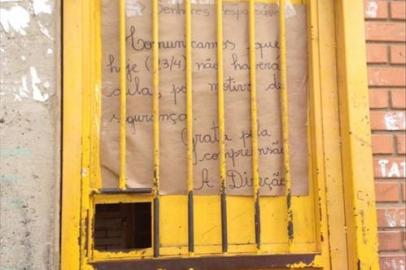 Senhores responsáveis
Comunicamos que
hoje (23/4) não haverá
aula, por motivo de
segurança.
Grata pela
compreensão
A Direção